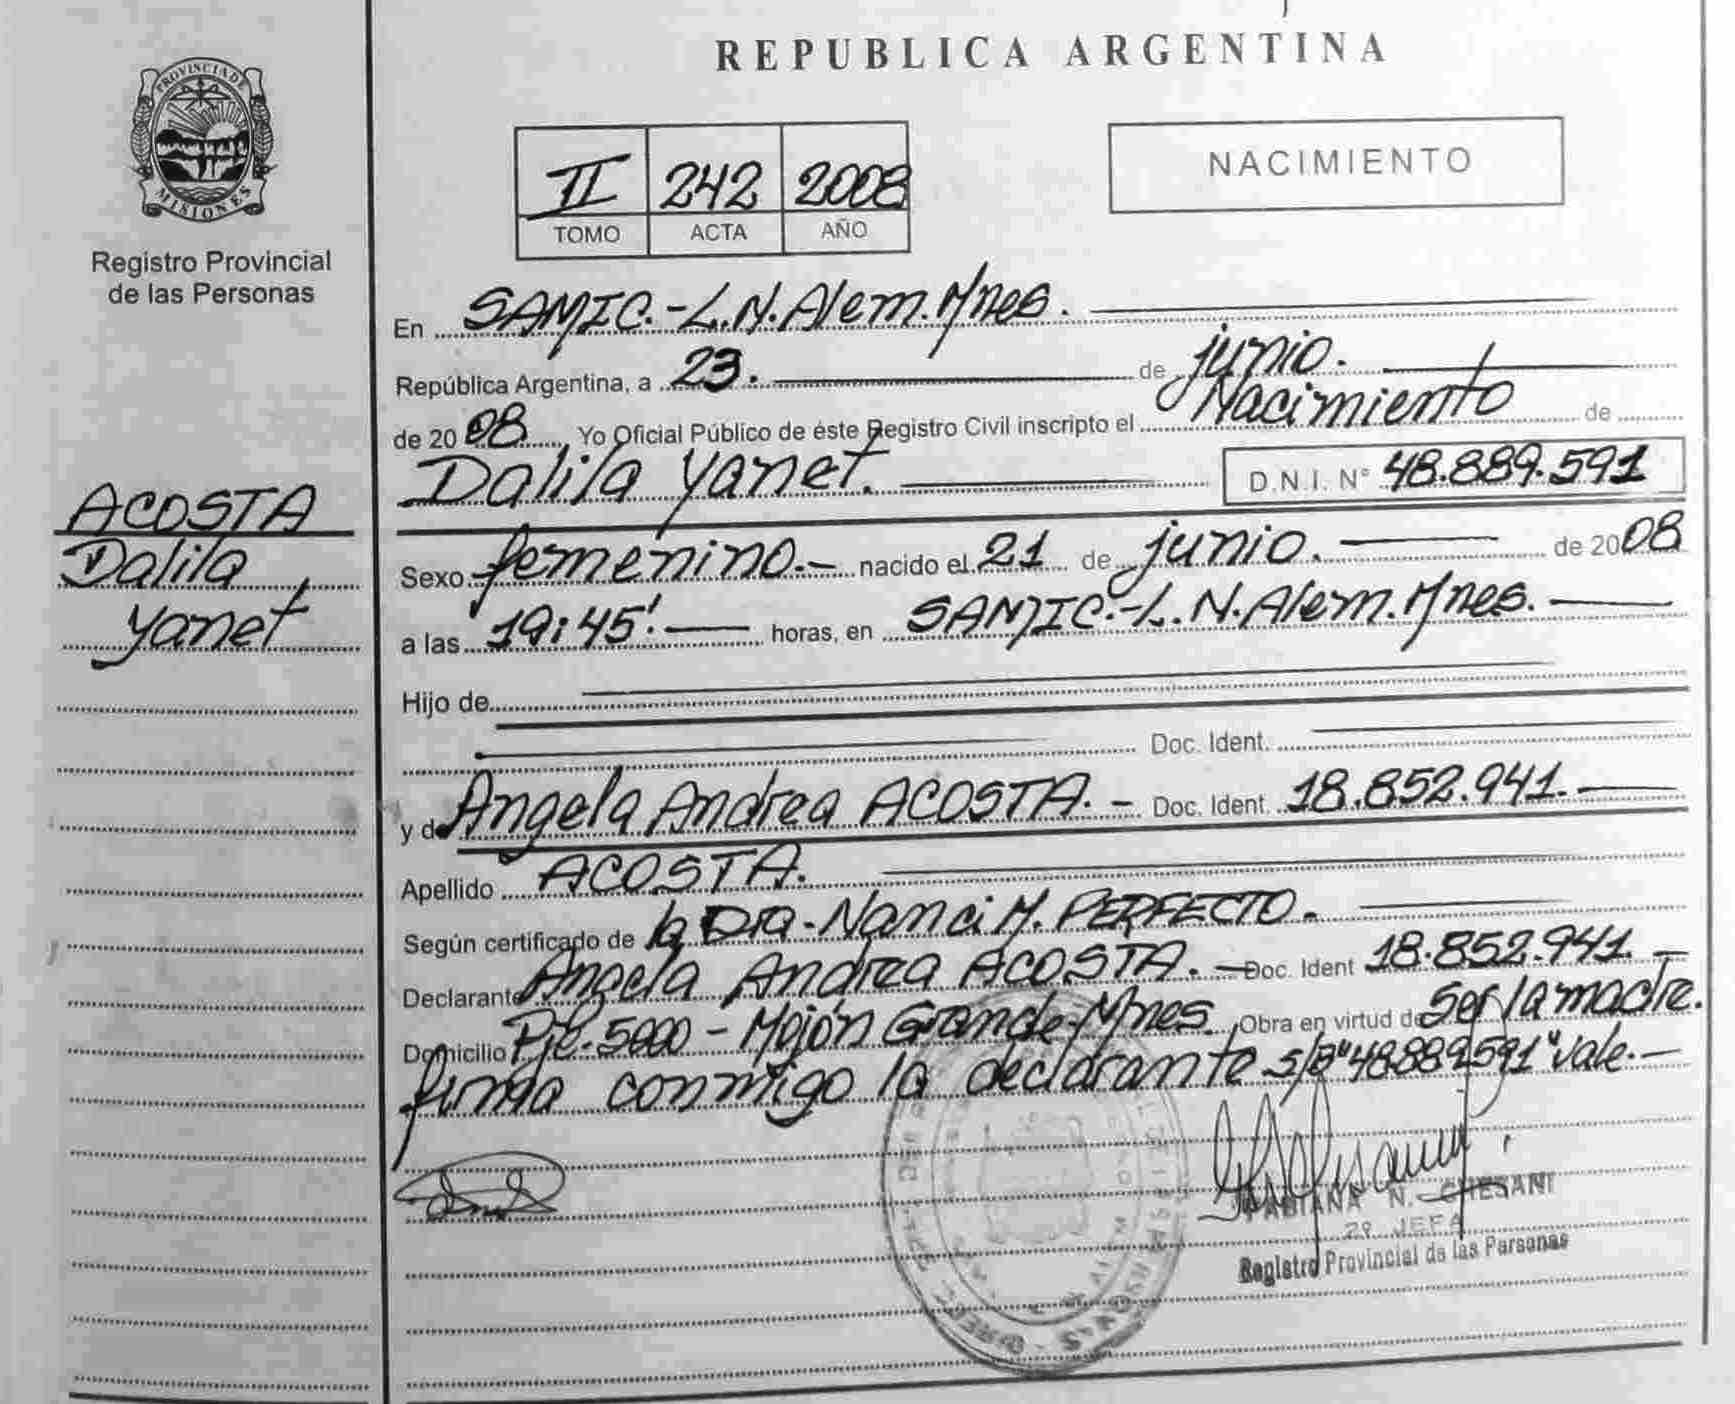 REPUBLICA ARGENTINA
PROVINCIA DE
MISIONES
Registro Provincial
de las Personas
II 242 2008
TOMO ACTA AÑO
NACIMIENTO
En SAMIC.-L.N.Alem.Mnes.
República Argentina, a 23. de junio.
de 2008 Yo Oficial Público de éste Registro Civil inscripto el Nacimiento de
Dalila Yanet. D.N.I. Nº 48.889.591
ACOSTA
Dalila
Yanet
Sexo femenino.- nacido el 21 de junio. de 2008
a las 19:45'. horas, en SAMIC.-L.N.Alem.Mnes.
Hijo de
Doc. Ident.
y de Angela Andrea ACOSTA.- Doc. Ident. 18.852.941.
Apellido ACOSTA.
Según certificado de la Dra. Nanci M. PERFECTO.
Declarante Angela Andrea ACOSTA.- Doc. Ident 18.852.941.-
Domicilio Pje-5000-Mojón Grande-Mnes Obra en virtud de Ser la madre.
firma conmigo la declarante s/B "48889591" vale.-
FABIANA N. CHESANI
2º JEFA
Registro Provincial de las Personas